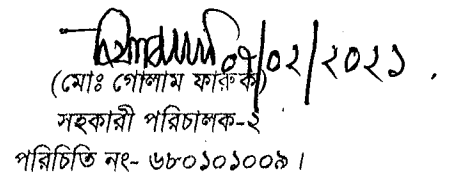 ০৭/০২/২০২১.
(মোঃ গোলাম ফারুক)
সহকারী পরিচালক-২
পরিচিতি নং- ৬৮০১০১০০৯।